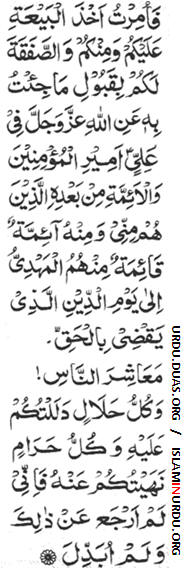 فَأُمِرْتُ اَخْذَ الْبَيْعَةِ
عَلَيْكُمْ وَمِنْكُمْ وَالصَّفْقَةَ
لَكُمْ بِقَبُوْلِ مَاجِئْتُ
بِهٖ عَنِ اللّٰهِ عَزَّوَجَلَّ فِىْ
عَلِىٍّ اَمِيْرِ الْمُؤْمِنِيْنَ
وَالْاَئِمَّةِ مِنْ بَعْدِهِ الَّذِيْنَ
هُمْ مِنِّىْ وَمِنْهُ آئِمَّةٌ
قَائِمَةٌ مِنْهُمُ الْمَهْدِىُّ
اِلٰى يَوْمِ الدِّيْنِ الَّذِىْ
يَقْضِىْ بِالْحَقِّ.
مَعَاشِرَ النَّاسِ!
وَكُلُّ حَلَالٍ دَلَلْتُكُمْ
عَلَيْهِ وَكُلُّ حَرَامٍ
نَهَيْتُكُمْ عَنْهُ فَاِنِّىْ
لَمْ اَرْجَعْ عَنْ ذٰلِكَ
وَلَمْ اُبَدِّلْ
URDU.DUAS.ORG / ISLAMINURDU.ORG